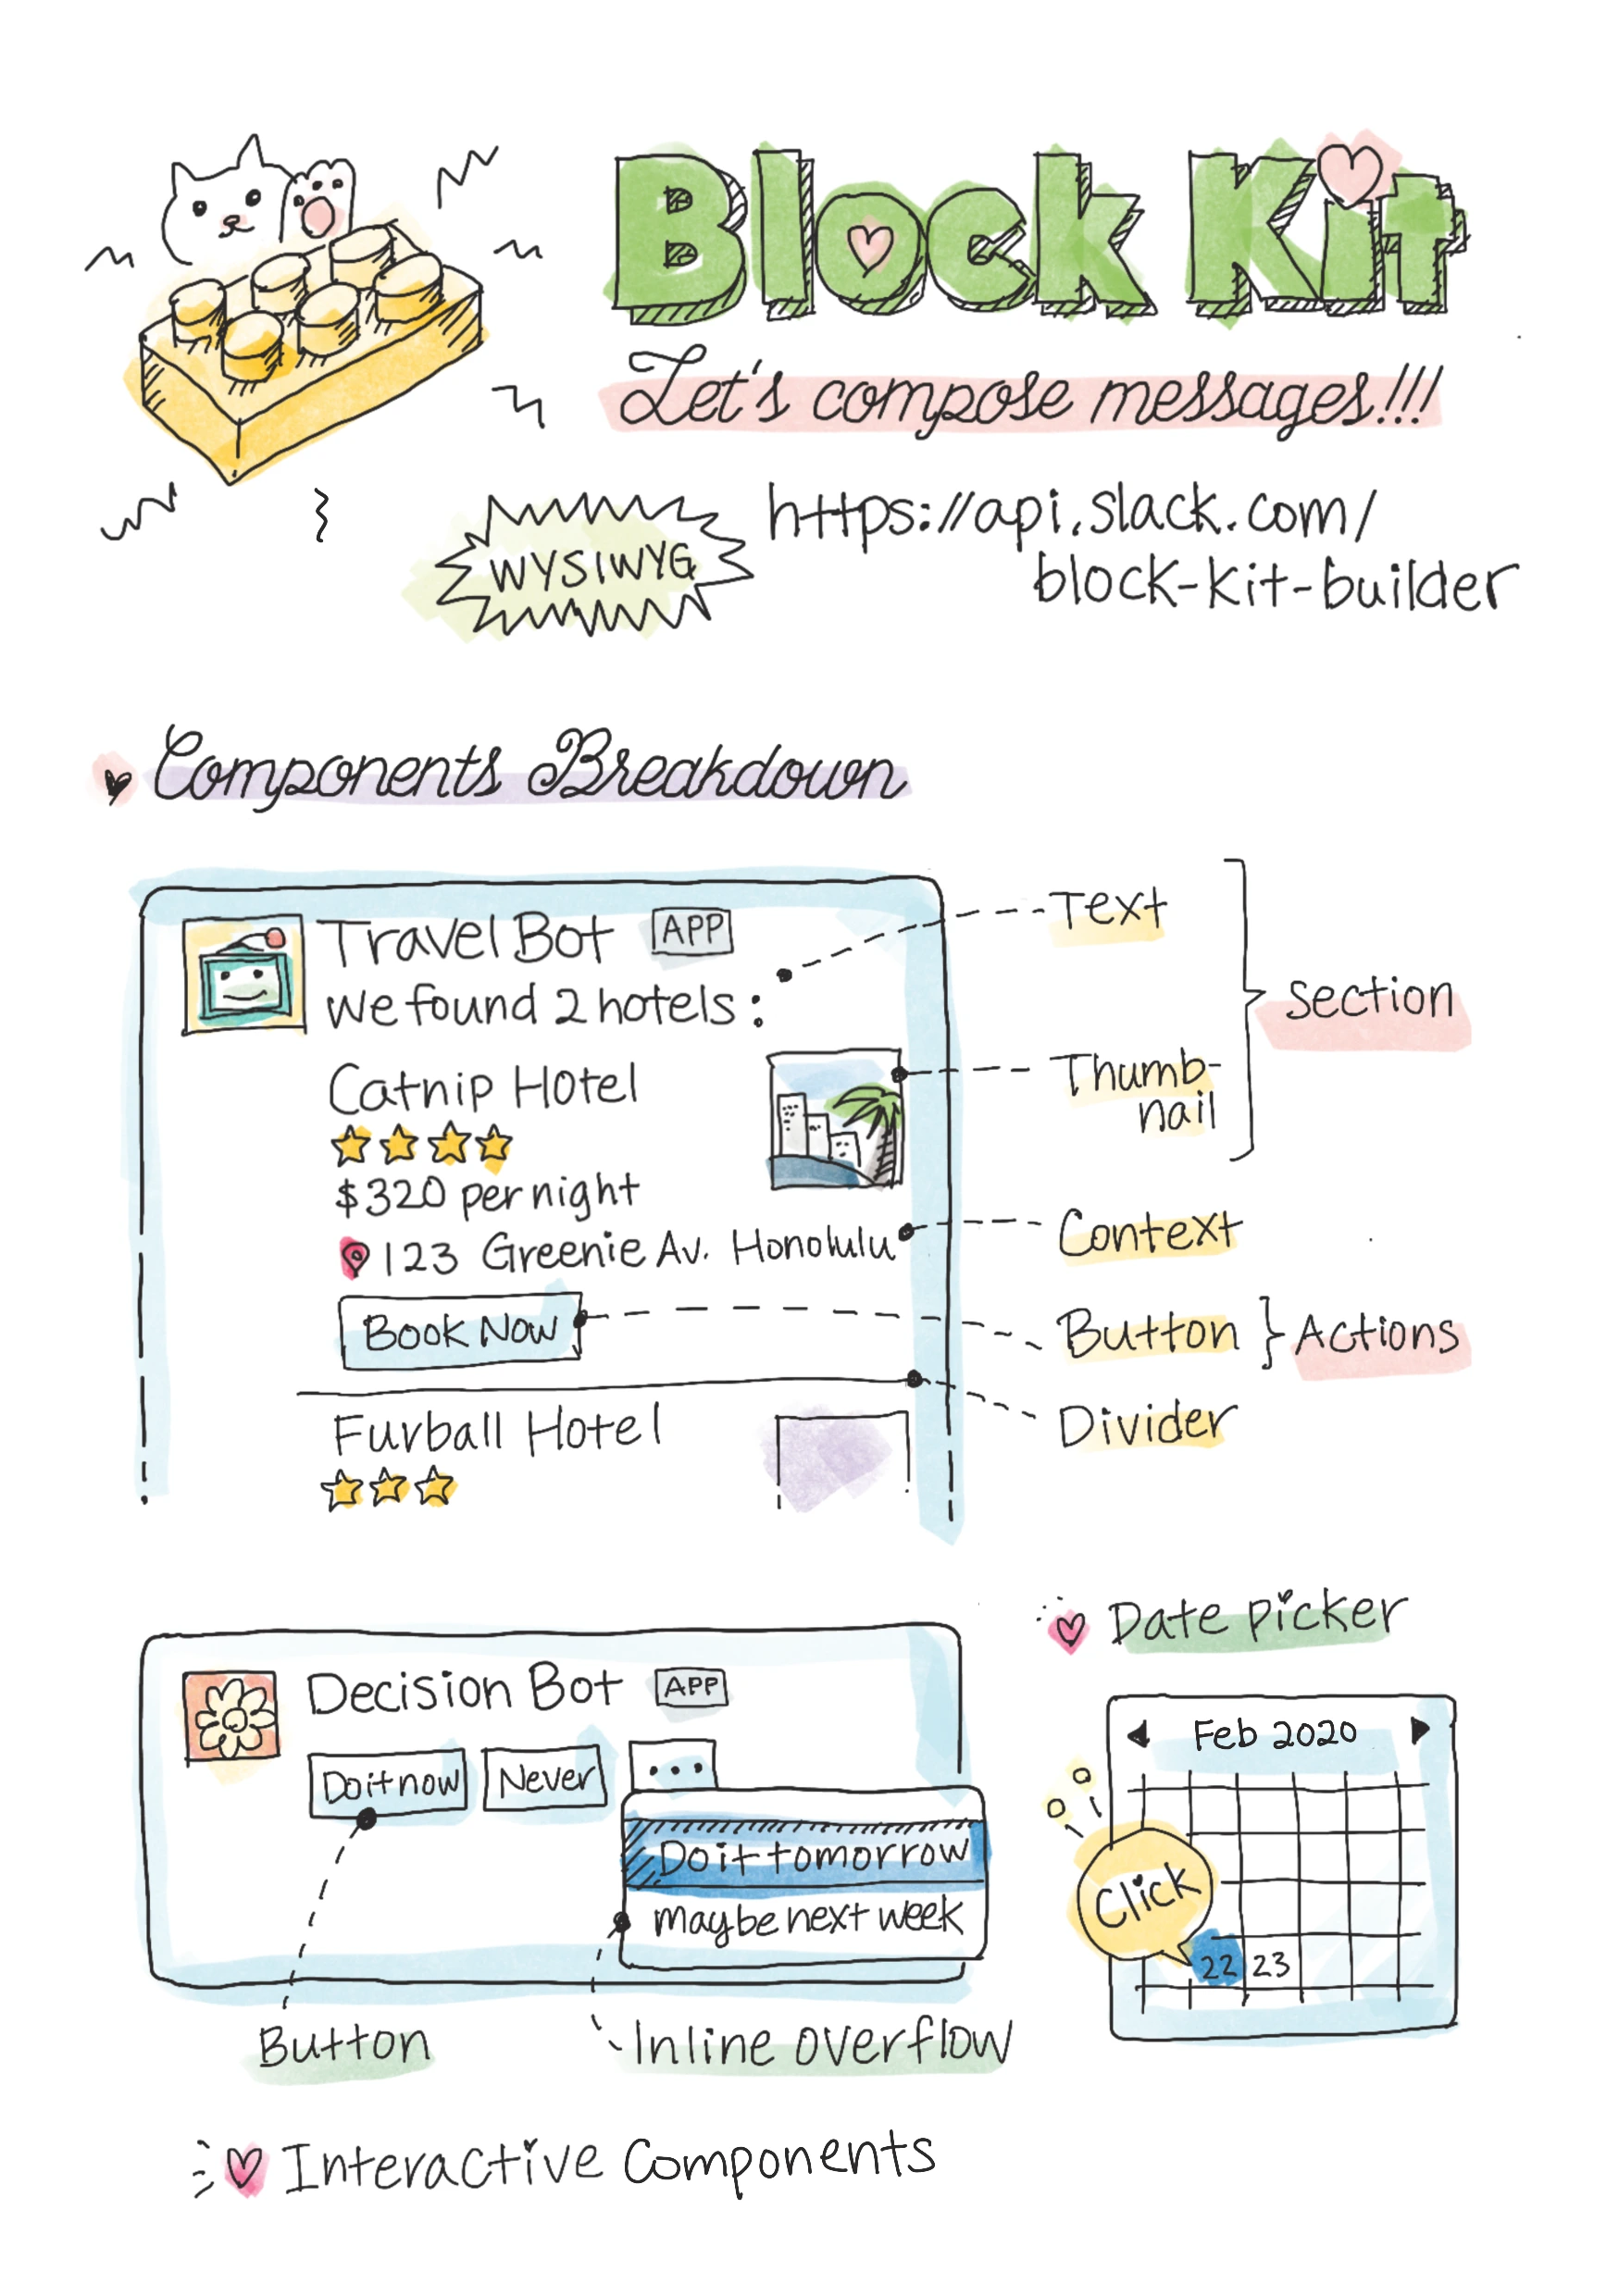 Block Kit
Let's compose messages!!!
WYSIWYG
https://api.slack.com/
block-kit-builder
Components Breakdown
Travel Bot APP
We found 2 hotels:
Catnip Hotel
$320 per night
123 Greenie Av. Honolulu
Book Now
Furball Hotel
Text
Thumb-
nail
section
Context
Button } Actions
Divider
Decision Bot APP
Do it now
Never
...
Do it tomorrow
maybe next week
Button
Inline overflow
Date picker
Feb 2020
Click
22 23
Interactive Components